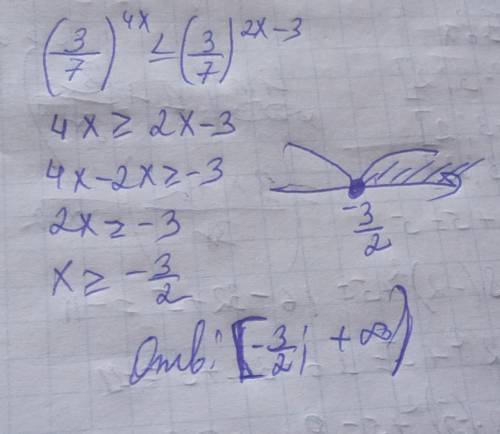 (3/7)^4x ≤ (3/7)^2x-3
4x ≥ 2x-3
4x-2x ≥ -3
2x ≥ -3
x ≥ -3/2
-3/2
Отв: [-3/2; +∞)